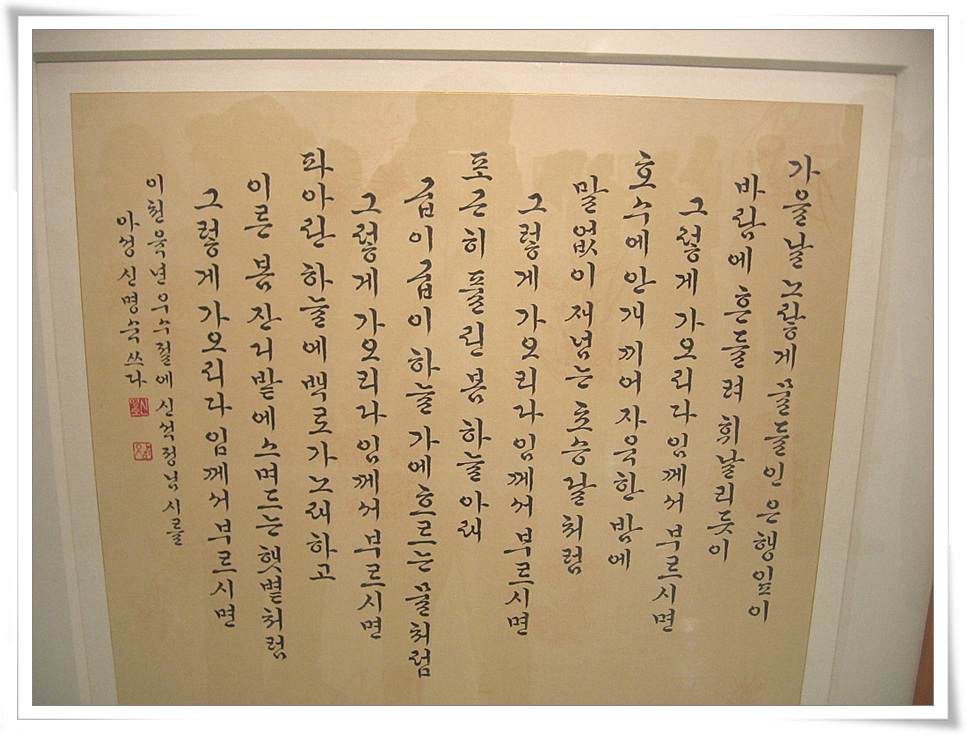 가을날 노랗게 물들인 은행잎이
바람에 흔들려 휘날리듯이
그렇게 가오리다 임께서 부르시면
호수에 안개 끼어 자욱한 밤에
말없이 재넘는 초승달처럼
그렇게 가오리다 임께서 부르시면
포근히 풀린 봄 하늘 아래
굽이굽이 하늘 가에 흐르는 물처럼
그렇게 가오리다 임께서 부르시면
파아란 하늘에 백로가 노래하고
이른 봄 잔디밭에 스며드는 햇볕처럼
그렇게 가오리다 임께서 부르시면
이천육년 우수절에 신석정님 시를
아성 신명숙 쓰다